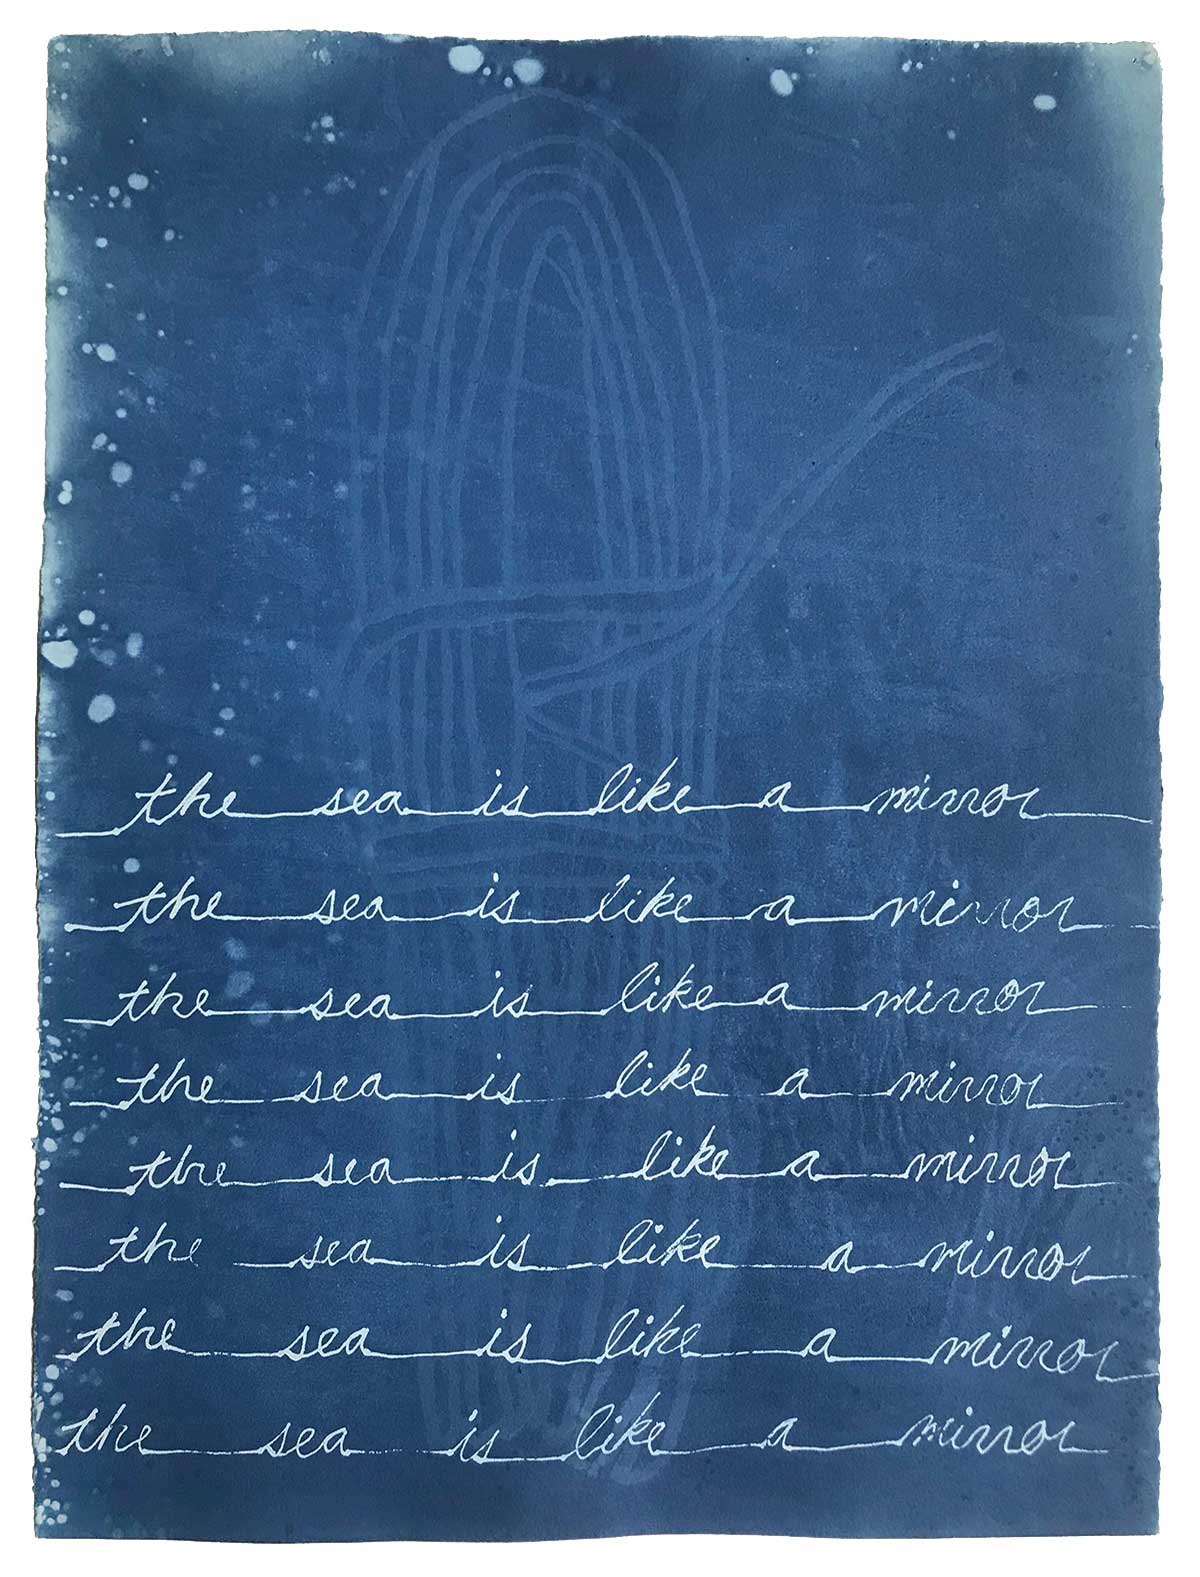 the sea is like a mirror
the sea is like a mirror
the sea is like a mirror
the sea is like a mirror
the sea is like a mirror
the sea is like a mirror
the sea is like a mirror
the sea is like a mirror